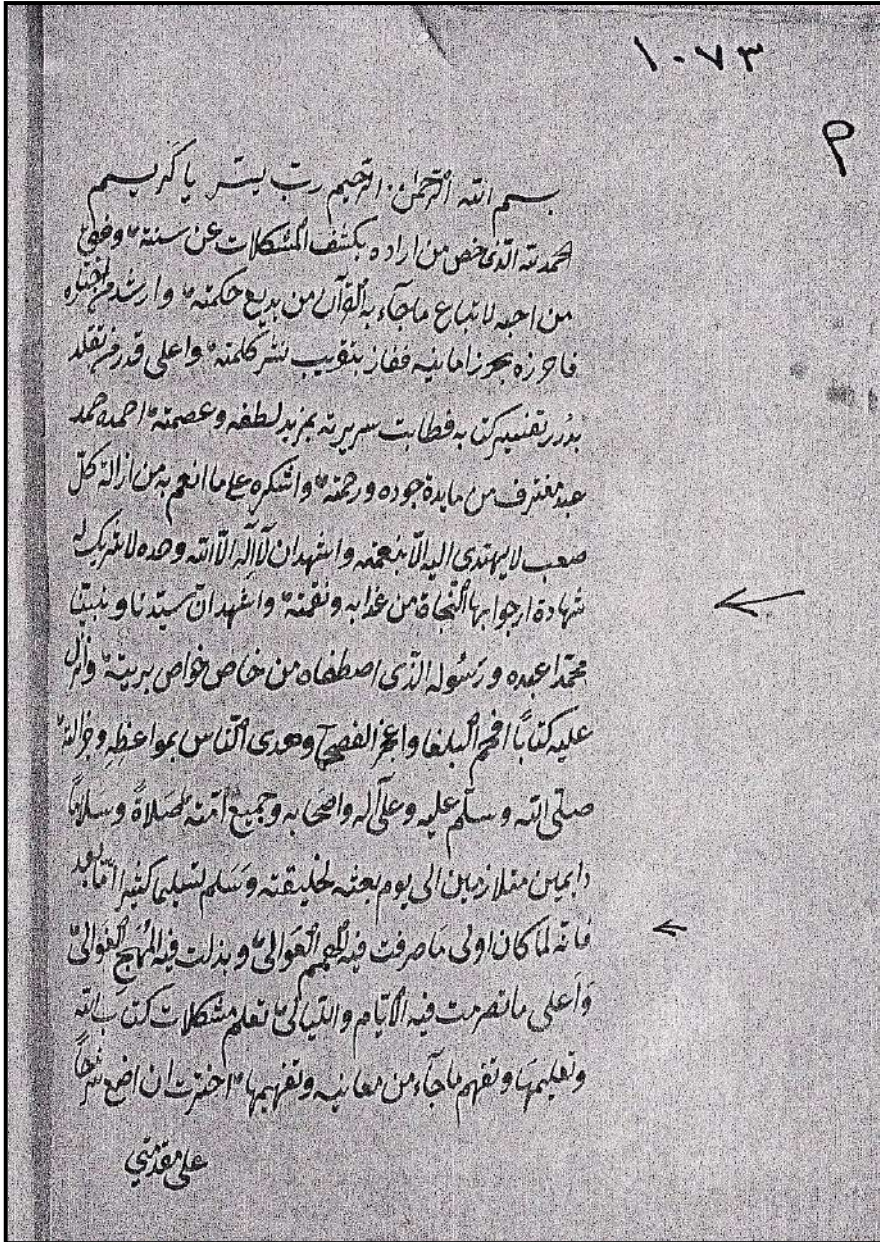 ١٠٧٣
م
بسم الله الرحمن الرحيم رب يسر يا كريم
الحمد لله الذى خص من اراده بكشف المشكلات عن سنته ووفق
من احبه لاتباع ماجآء به القرآن من بديع حكمته وارشد من اختاره
فاحرزه بحرز امانيه ففاز بتقريب نشر كلمته واعلى قدر من تقلد
بدرر تفسير كتابه فطابت سريرته بمزيد لطفه وعصمته احمده حمد
عبد مغترف من مايدة جوده ورحمته واشكره على ما انعم به من ازالة كل
صعب لا يهتدى اليه الا بنعمته واشهد ان لآ اله الا الله وحده لا شريك له
شهادة ارجوا بها النجاة من عذابه ونقمته واشهد ان سيدنا ونبينا
محمدا عبده ورسوله الذى اصطفاه من خاص خواص بريته وانزل
عليه كتابًا افحم البلغا واعجز الفصحآ وهدى الناس بمواعظه وجزالته
صلى الله وسلم عليه وعلى آله واصحابه وجميع امته صلاةً وسلامًا
دايمين متلازمين الى يوم بعثه لخليقته وسلم تسليما كثيرا امابعد
فانه لما كان اولى ماصرفت فيه الهمم العوالى وبذلت فيه المهج الغوالى
وأعلى ماتصرمت فيه الايام والليالى تعلم مشكلات كتاب الله
وتعليمها وتفهم ماجآء من معانيه وتفهيمها اخترت ان اضع شرحًا
على مقدمتي